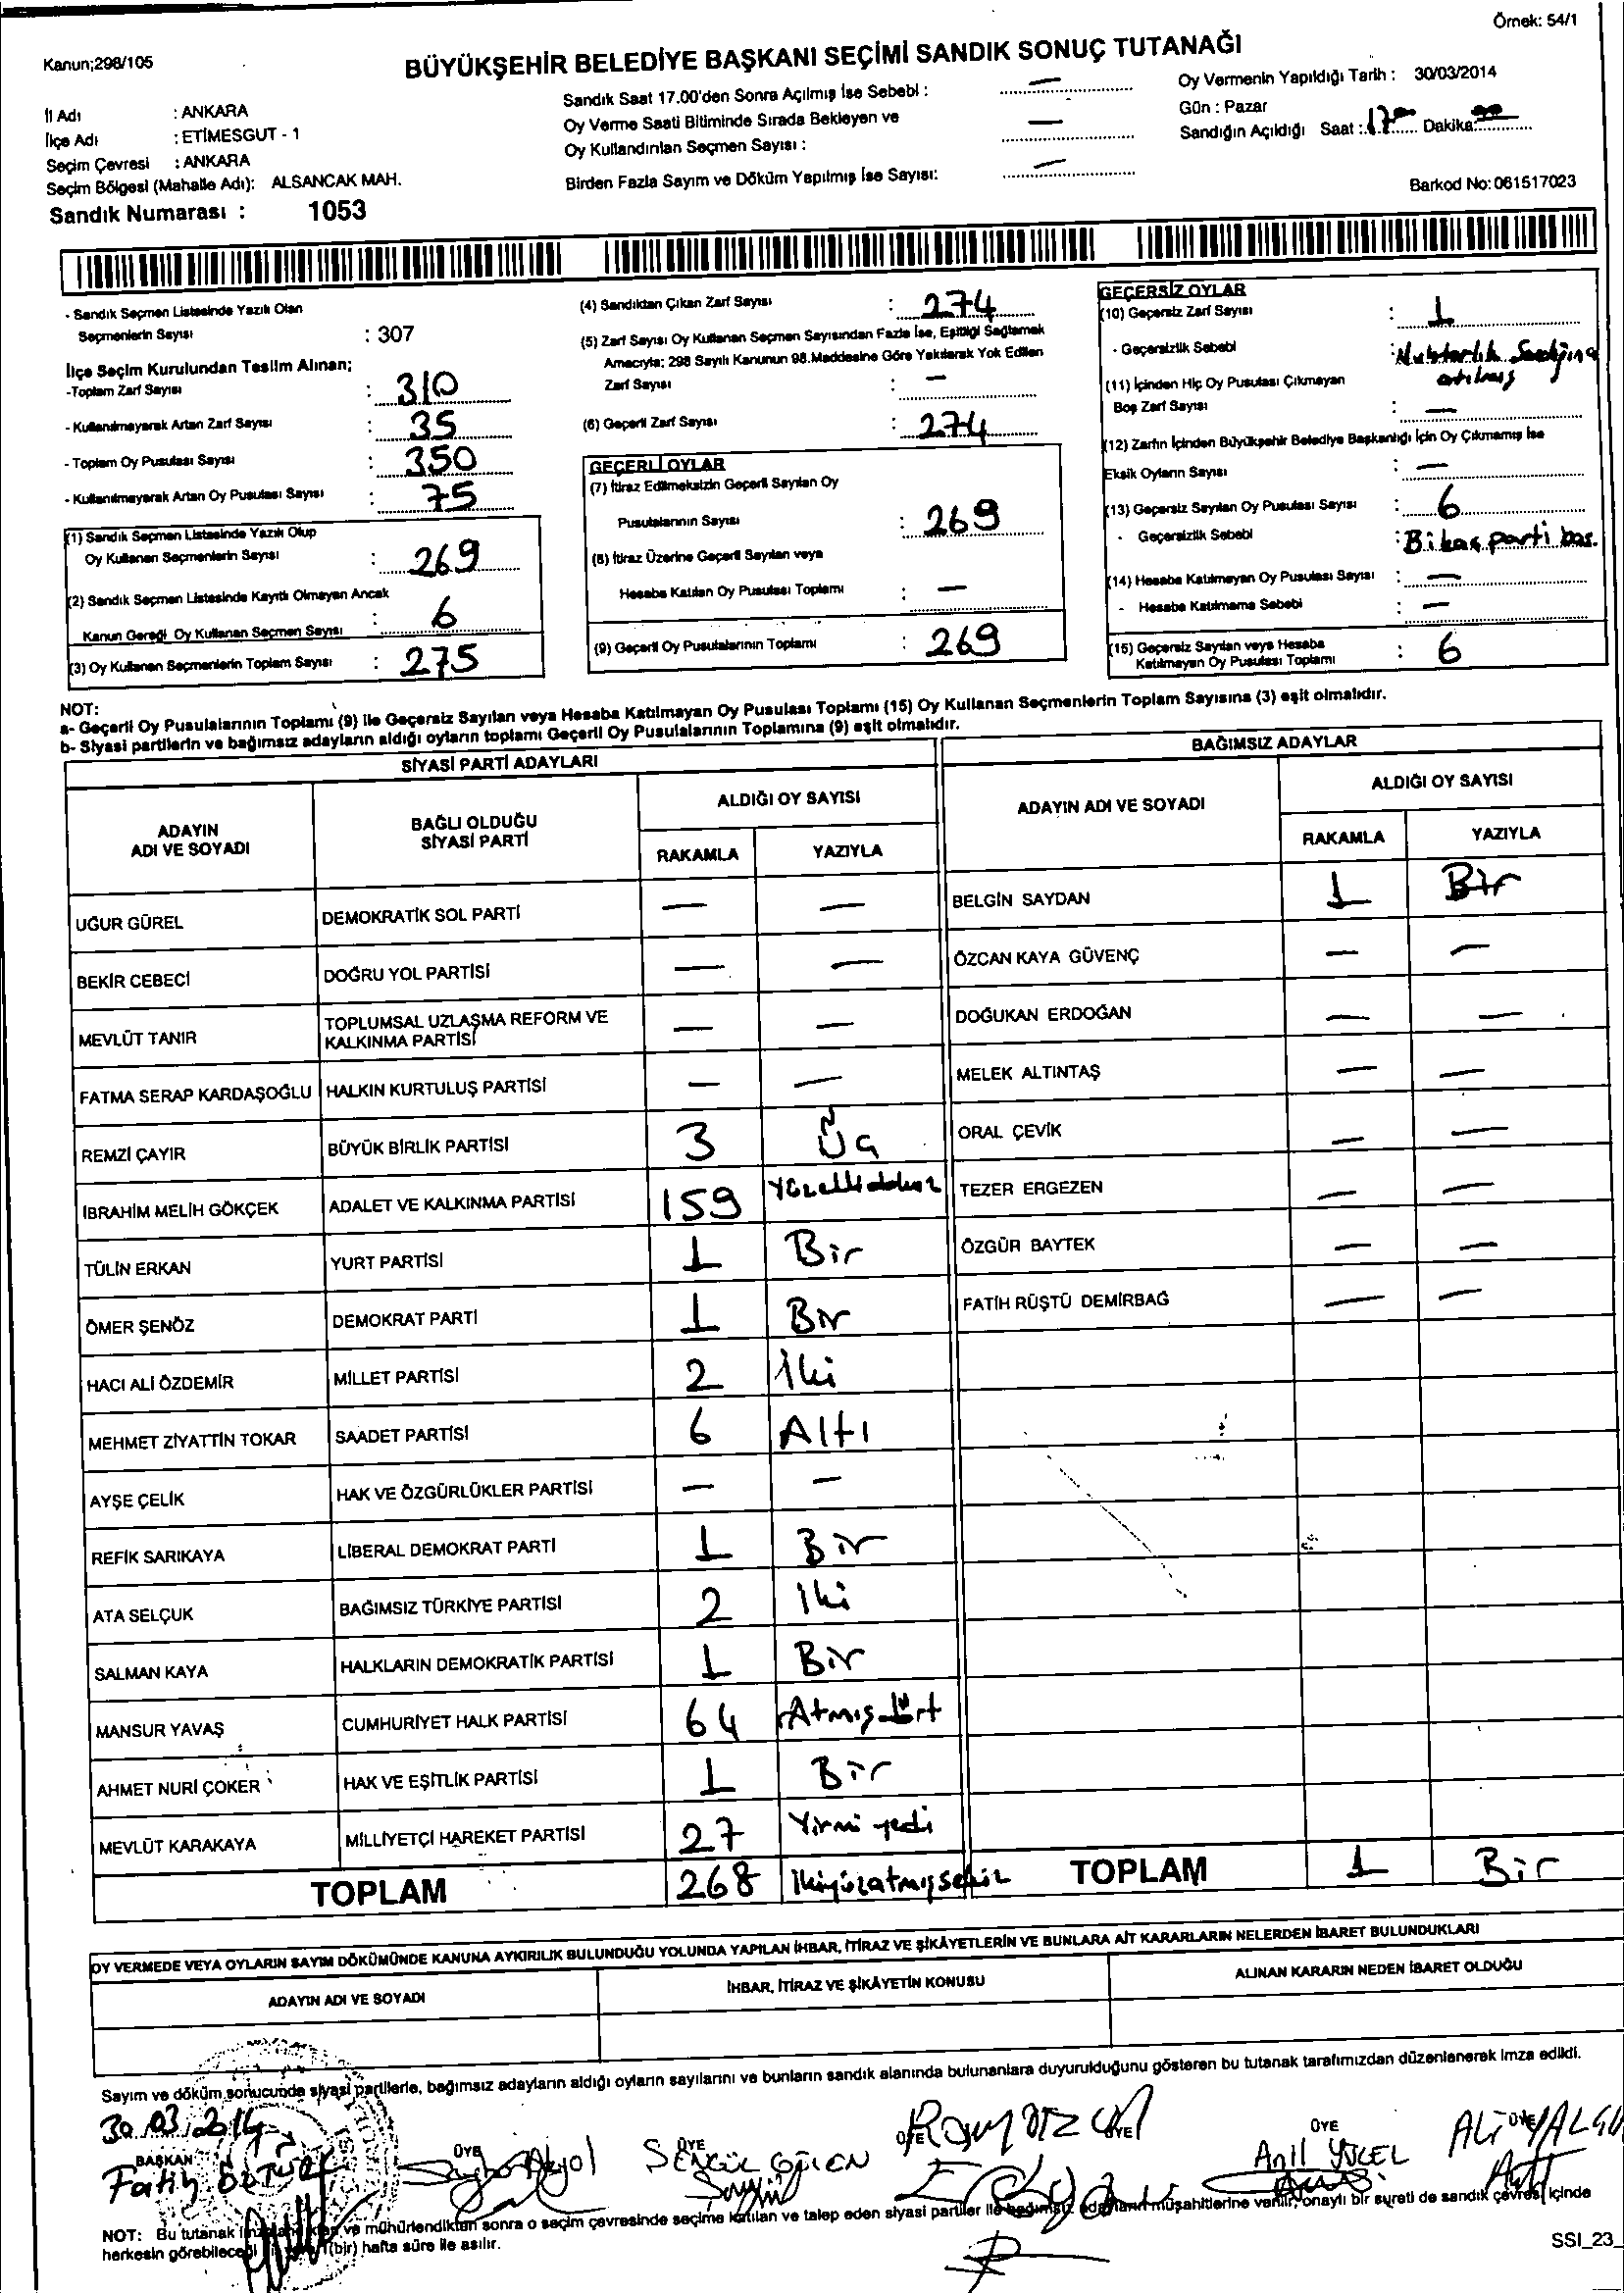 Örnek: 54/1
Kanun;298/105
BÜYÜKŞEHİR BELEDİYE BAŞKANI SEÇİMİ SANDIK SONUÇ TUTANAĞI
İl Adı : ANKARA
İlçe Adı : ETİMESGUT - 1
Seçim Çevresi : ANKARA
Seçim Bölgesi (Mahalle Adı): ALSANCAK MAH.
Sandık Numarası : 1053
Sandık Saat 17.00'den Sonra Açılmış İse Sebebi : —
Oy Verme Saati Bitiminde Sırada Bekleyen ve
Oy Kullandırılan Seçmen Sayısı : —
Birden Fazla Sayım ve Döküm Yapılmış İse Sayısı: —
Oy Vermenin Yapıldığı Tarih : 30/03/2014
Gün : Pazar
Sandığın Açıldığı Saat : 17 00 Dakika: 00
Barkod No: 061517023
- Sandık Seçmen Listesinde Yazılı Olan
Seçmenlerin Sayısı : 307
İlçe Seçim Kurulundan Teslim Alınan;
-Toplam Zarf Sayısı : 310
- Kullanılmayarak Artan Zarf Sayısı : 35
- Toplam Oy Pusulası Sayısı : 350
- Kullanılmayarak Artan Oy Pusulası Sayısı : 75
(1) Sandık Seçmen Listesinde Yazılı Olup
Oy Kullanan Seçmenlerin Sayısı : 269
(2) Sandık Seçmen Listesinde Kayıtlı Olmayan Ancak
Kanun Gereği Oy Kullanan Seçmen Sayısı : 6
(3) Oy Kullanan Seçmenlerin Toplam Sayısı : 275
(4) Sandıktan Çıkan Zarf Sayısı : 274
(5) Zarf Sayısı Oy Kullanan Seçmen Sayısından Fazla İse, Eşitliği Sağlamak
Amacıyla; 298 Sayılı Kanunun 98.Maddesine Göre Yakılarak Yok Edilen
Zarf Sayısı : —
(6) Geçerli Zarf Sayısı : 274
GEÇERLİ OYLAR
(7) İtiraz Edilmeksizin Geçerli Sayılan Oy
Pusulalarının Sayısı : 269
(8) İtiraz Üzerine Geçerli Sayılan veya
Hesaba Katılan Oy Pusulası Toplamı : —
(9) Geçerli Oy Pusulalarının Toplamı : 269
GEÇERSİZ OYLAR
(10) Geçersiz Zarf Sayısı : 1
- Geçersizlik Sebebi : Muhtarlık Sandığına
atılmış
(11) İçinden Hiç Oy Pusulası Çıkmayan
Boş Zarf Sayısı : —
(12) Zarfın İçinden Büyükşehir Belediye Başkanlığı İçin Oy Çıkmamış İse
Eksik Oyların Sayısı : —
(13) Geçersiz Sayılan Oy Pusulası Sayısı : 6
- Geçersizlik Sebebi : Bikaç parti bas.
(14) Hesaba Katılmayan Oy Pusulası Sayısı : —
- Hesaba Katılmama Sebebi : —
(15) Geçersiz Sayılan veya Hesaba
Katılmayan Oy Pusulası Toplamı : 6
NOT:
a- Geçerli Oy Pusulalarının Toplamı (9) ile Geçersiz Sayılan veya Hesaba Katılmayan Oy Pusulası Toplamı (15) Oy Kullanan Seçmenlerin Toplam Sayısına (3) eşit olmalıdır.
b- Siyasi partilerin ve bağımsız adayların aldığı oyların toplamı Geçerli Oy Pusulalarının Toplamına (9) eşit olmalıdır.
SİYASİ PARTİ ADAYLARI
ADAYIN ADI VE SOYADI BAĞLI OLDUĞU SİYASİ PARTİ ALDIĞI OY SAYISI
RAKAMLA YAZIYLA
UĞUR GÜREL DEMOKRATİK SOL PARTİ — —
BEKİR CEBECİ DOĞRU YOL PARTİSİ — —
MEVLÜT TANIR TOPLUMSAL UZLAŞMA REFORM VE KALKINMA PARTİSİ — —
FATMA SERAP KARDAŞOĞLU HALKIN KURTULUŞ PARTİSİ — —
REMZİ ÇAYIR BÜYÜK BİRLİK PARTİSİ 3 Üç
İBRAHİM MELİH GÖKÇEK ADALET VE KALKINMA PARTİSİ 159 Yüzellidokuz
TÜLİN ERKAN YURT PARTİSİ 1 Bir
ÖMER ŞENÖZ DEMOKRAT PARTİ 1 Bir
HACI ALİ ÖZDEMİR MİLLET PARTİSİ 2 İki
MEHMET ZİYATTİN TOKAR SAADET PARTİSİ 6 Altı
AYŞE ÇELİK HAK VE ÖZGÜRLÜKLER PARTİSİ — —
REFİK SARIKAYA LİBERAL DEMOKRAT PARTİ 1 Bir
ATA SELÇUK BAĞIMSIZ TÜRKİYE PARTİSİ 2 İki
SALMAN KAYA HALKLARIN DEMOKRATİK PARTİSİ 1 Bir
MANSUR YAVAŞ CUMHURİYET HALK PARTİSİ 64 Atmışdört
AHMET NURİ ÇOKER HAK VE EŞİTLİK PARTİSİ 1 Bir
MEVLÜT KARAKAYA MİLLİYETÇİ HAREKET PARTİSİ 27 Yirmi yedi
TOPLAM 268 İkiyüzatmışsekiz
BAĞIMSIZ ADAYLAR
ADAYIN ADI VE SOYADI ALDIĞI OY SAYISI
RAKAMLA YAZIYLA
BELGİN SAYDAN 1 Bir
ÖZCAN KAYA GÜVENÇ — —
DOĞUKAN ERDOĞAN — —
MELEK ALTINTAŞ — —
ORAL ÇEVİK — —
TEZER ERGEZEN — —
ÖZGÜR BAYTEK — —
FATİH RÜŞTÜ DEMİRBAĞ — —
TOPLAM 1 Bir
OY VERMEDE VEYA OYLARIN SAYIM DÖKÜMÜNDE KANUNA AYKIRILIK BULUNDUĞU YOLUNDA YAPILAN İHBAR, İTİRAZ VE ŞİKÂYETLERİN VE BUNLARA AİT KARARLARIN NELERDEN İBARET BULUNDUKLARI
ADAYIN ADI VE SOYADI İHBAR, İTİRAZ VE ŞİKÂYETİN KONUSU ALINAN KARARIN NEDEN İBARET OLDUĞU
Sayım ve döküm sonucunda siyasi partilerle, bağımsız adayların aldığı oyların sayılarını ve bunların sandık alanında bulunanlara duyurulduğunu gösteren bu tutanak tarafımızdan düzenlenerek imza edildi.
30.03.2014
BAŞKAN ÜYE ÜYE ÜYE ÜYE ÜYE ÜYE
Fatih Öztürk Akyol ŞENGÜL Anıl YÜCEL ALİ
NOT: Bu tutanak ve mühürlendikten sonra o seçim çevresinde seçime katılan ve talep eden siyasi partiler ile bağımsız adayların müşahitlerine verilir, onaylı bir sureti de sandık çevresi içinde
herkesin görebileceği (bir) hafta süre ile asılır.
SSI_23_